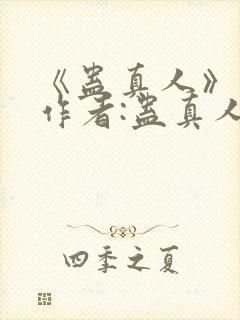 《蛊真人》
作者:蛊真人
四季之夏